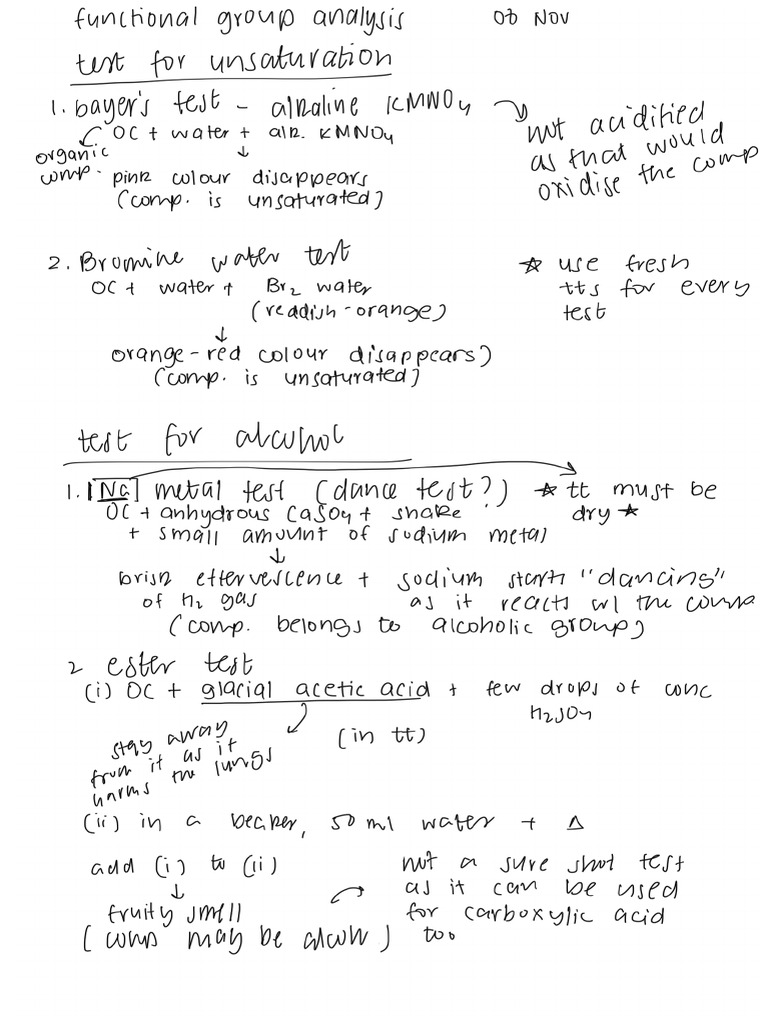 functional group analysis 08 Nov
test for unsaturation
1. bayer's test - alkaline KMNO4
not acidified
as that would
oxidise the comp
OC + water + alk. KMNO4
organic
comp.
↓
pink colour disappears
(comp. is unsaturated)
2. Bromine water test
OC + water + Br2 water
(readish-orange)
☆ use fresh
tts for every
test
↓
orange-red colour disappears)
(comp. is unsaturated)
test for alcohol
1. Na metal test (dance test?) ☆ tt must be
dry ☆
OC + anhydrous CaSO4 + shake
+ small amount of sodium metal
↓
brisk effervescence + sodium starts "dancing"
of H2 gas as it reacts w/ the comp
(comp. belongs to alcoholic group)
2 ester test
(i) OC + glacial acetic acid + few drops of conc
H2SO4
(in tt)
stay away
from it as it
harms the lungs
(ii) in a beaker, 50 ml water + Δ
add (i) to (ii)
↓
fruity smell
(comp may be alcoh)
not a sure shot test
as it can be used
for carboxylic acid
too